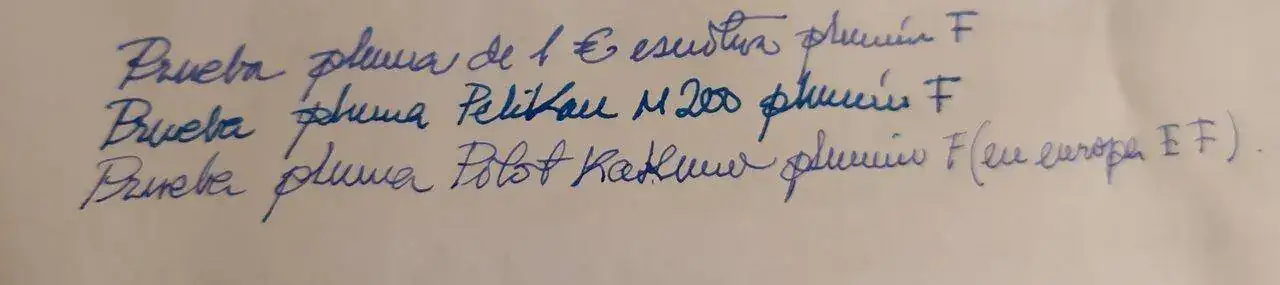 Prueba pluma de 1 € escritura plumín F
Prueba pluma Pelikan M200 plumín F
Prueba pluma Pilot Kakuno plumín F (en europa EF).